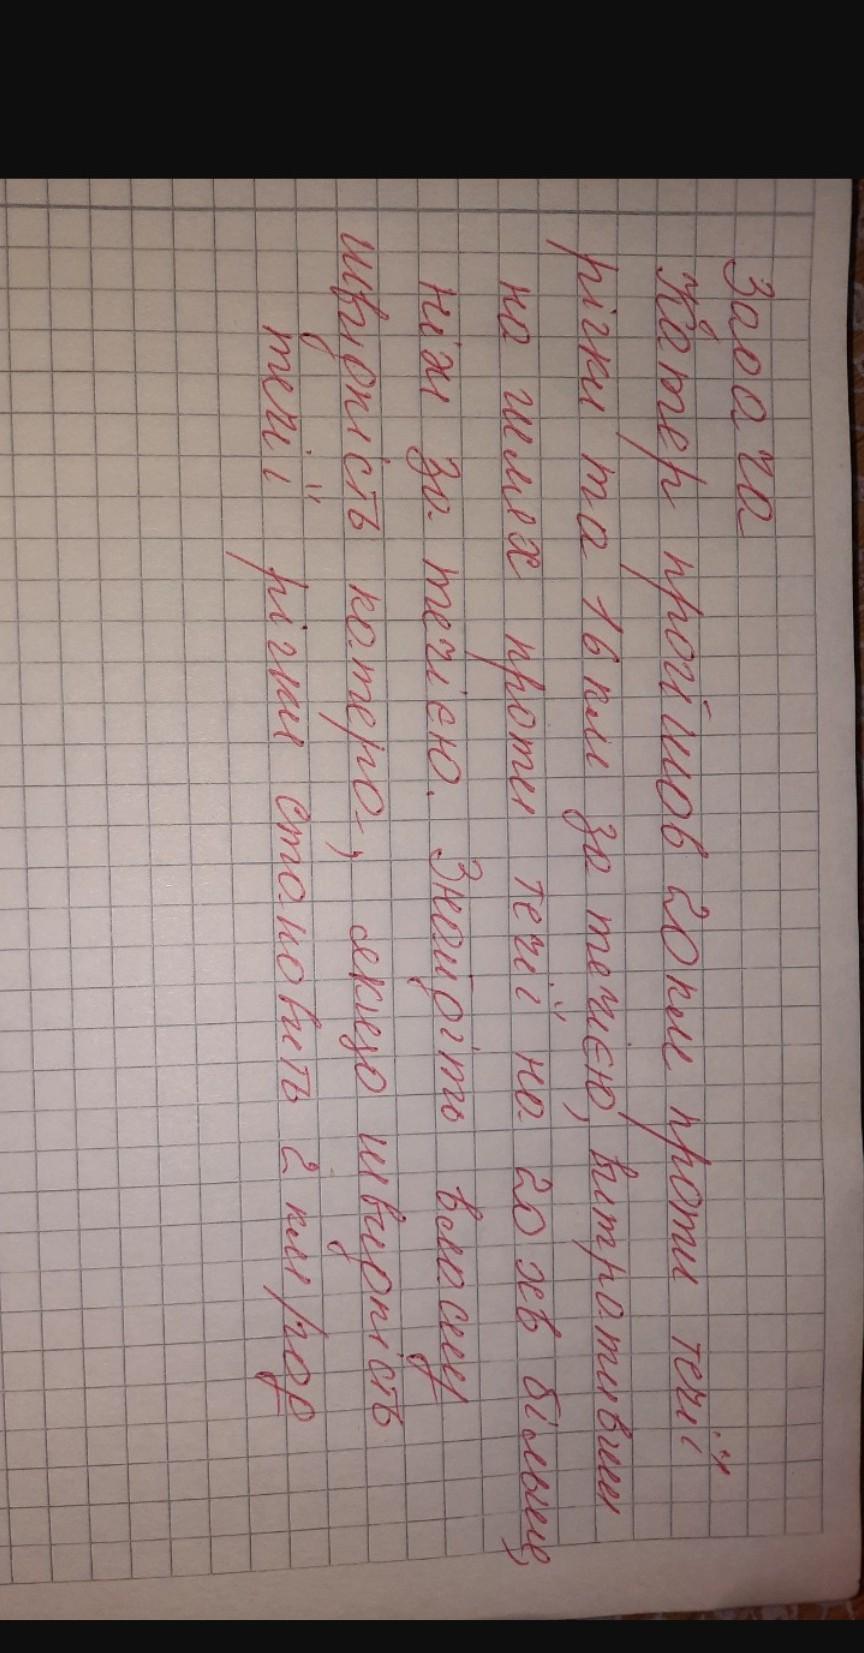 Задача
Катер пройшов 20км проти течії
річки та 16 км за течією, витративши
на шлях проти течії на 20 хв більше,
ніж за течією. Знайдіть власну
швидкість катера, якщо швидкість
течії річки становить 2 км/год